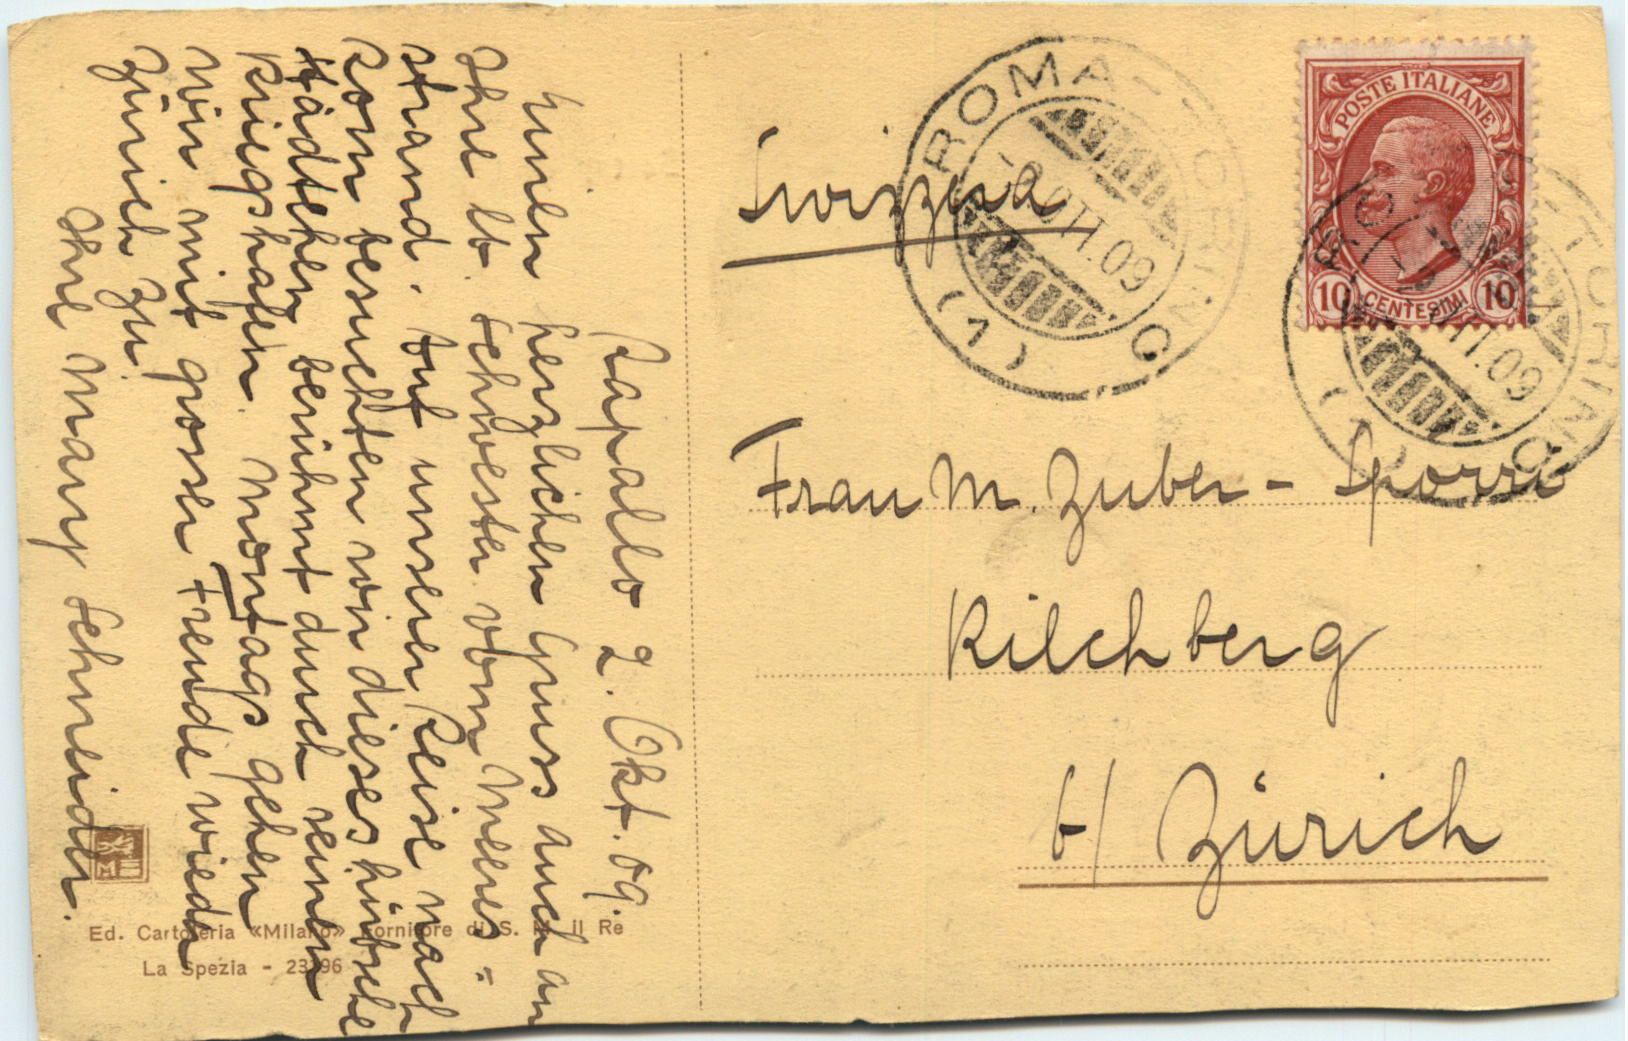 Rapallo 2. Okt. 09.
Einen herzlichen Gruss auch an
Ihre lb. Schwester vom Meeres=
strand. Auf unserer Reise nach
Rom besuchten wir dieses hübsche
Städtchen berühmt durch seinen
Kriegshafen. Montags gehen
wir mit grosser Freude wieder
Zürich zu.
Ihre Mary Schneider.
Ed. Cartoleria «Milano» Fornitore di S. M. Il Re
La Spezia - 23196
Svizzera
ROMA--TORINO
(1)
POSTE ITALIANE
10 CENTESIMI 10
TORINO
Frau M. Zuber - Spörri
Kilchberg
b/ Zürich